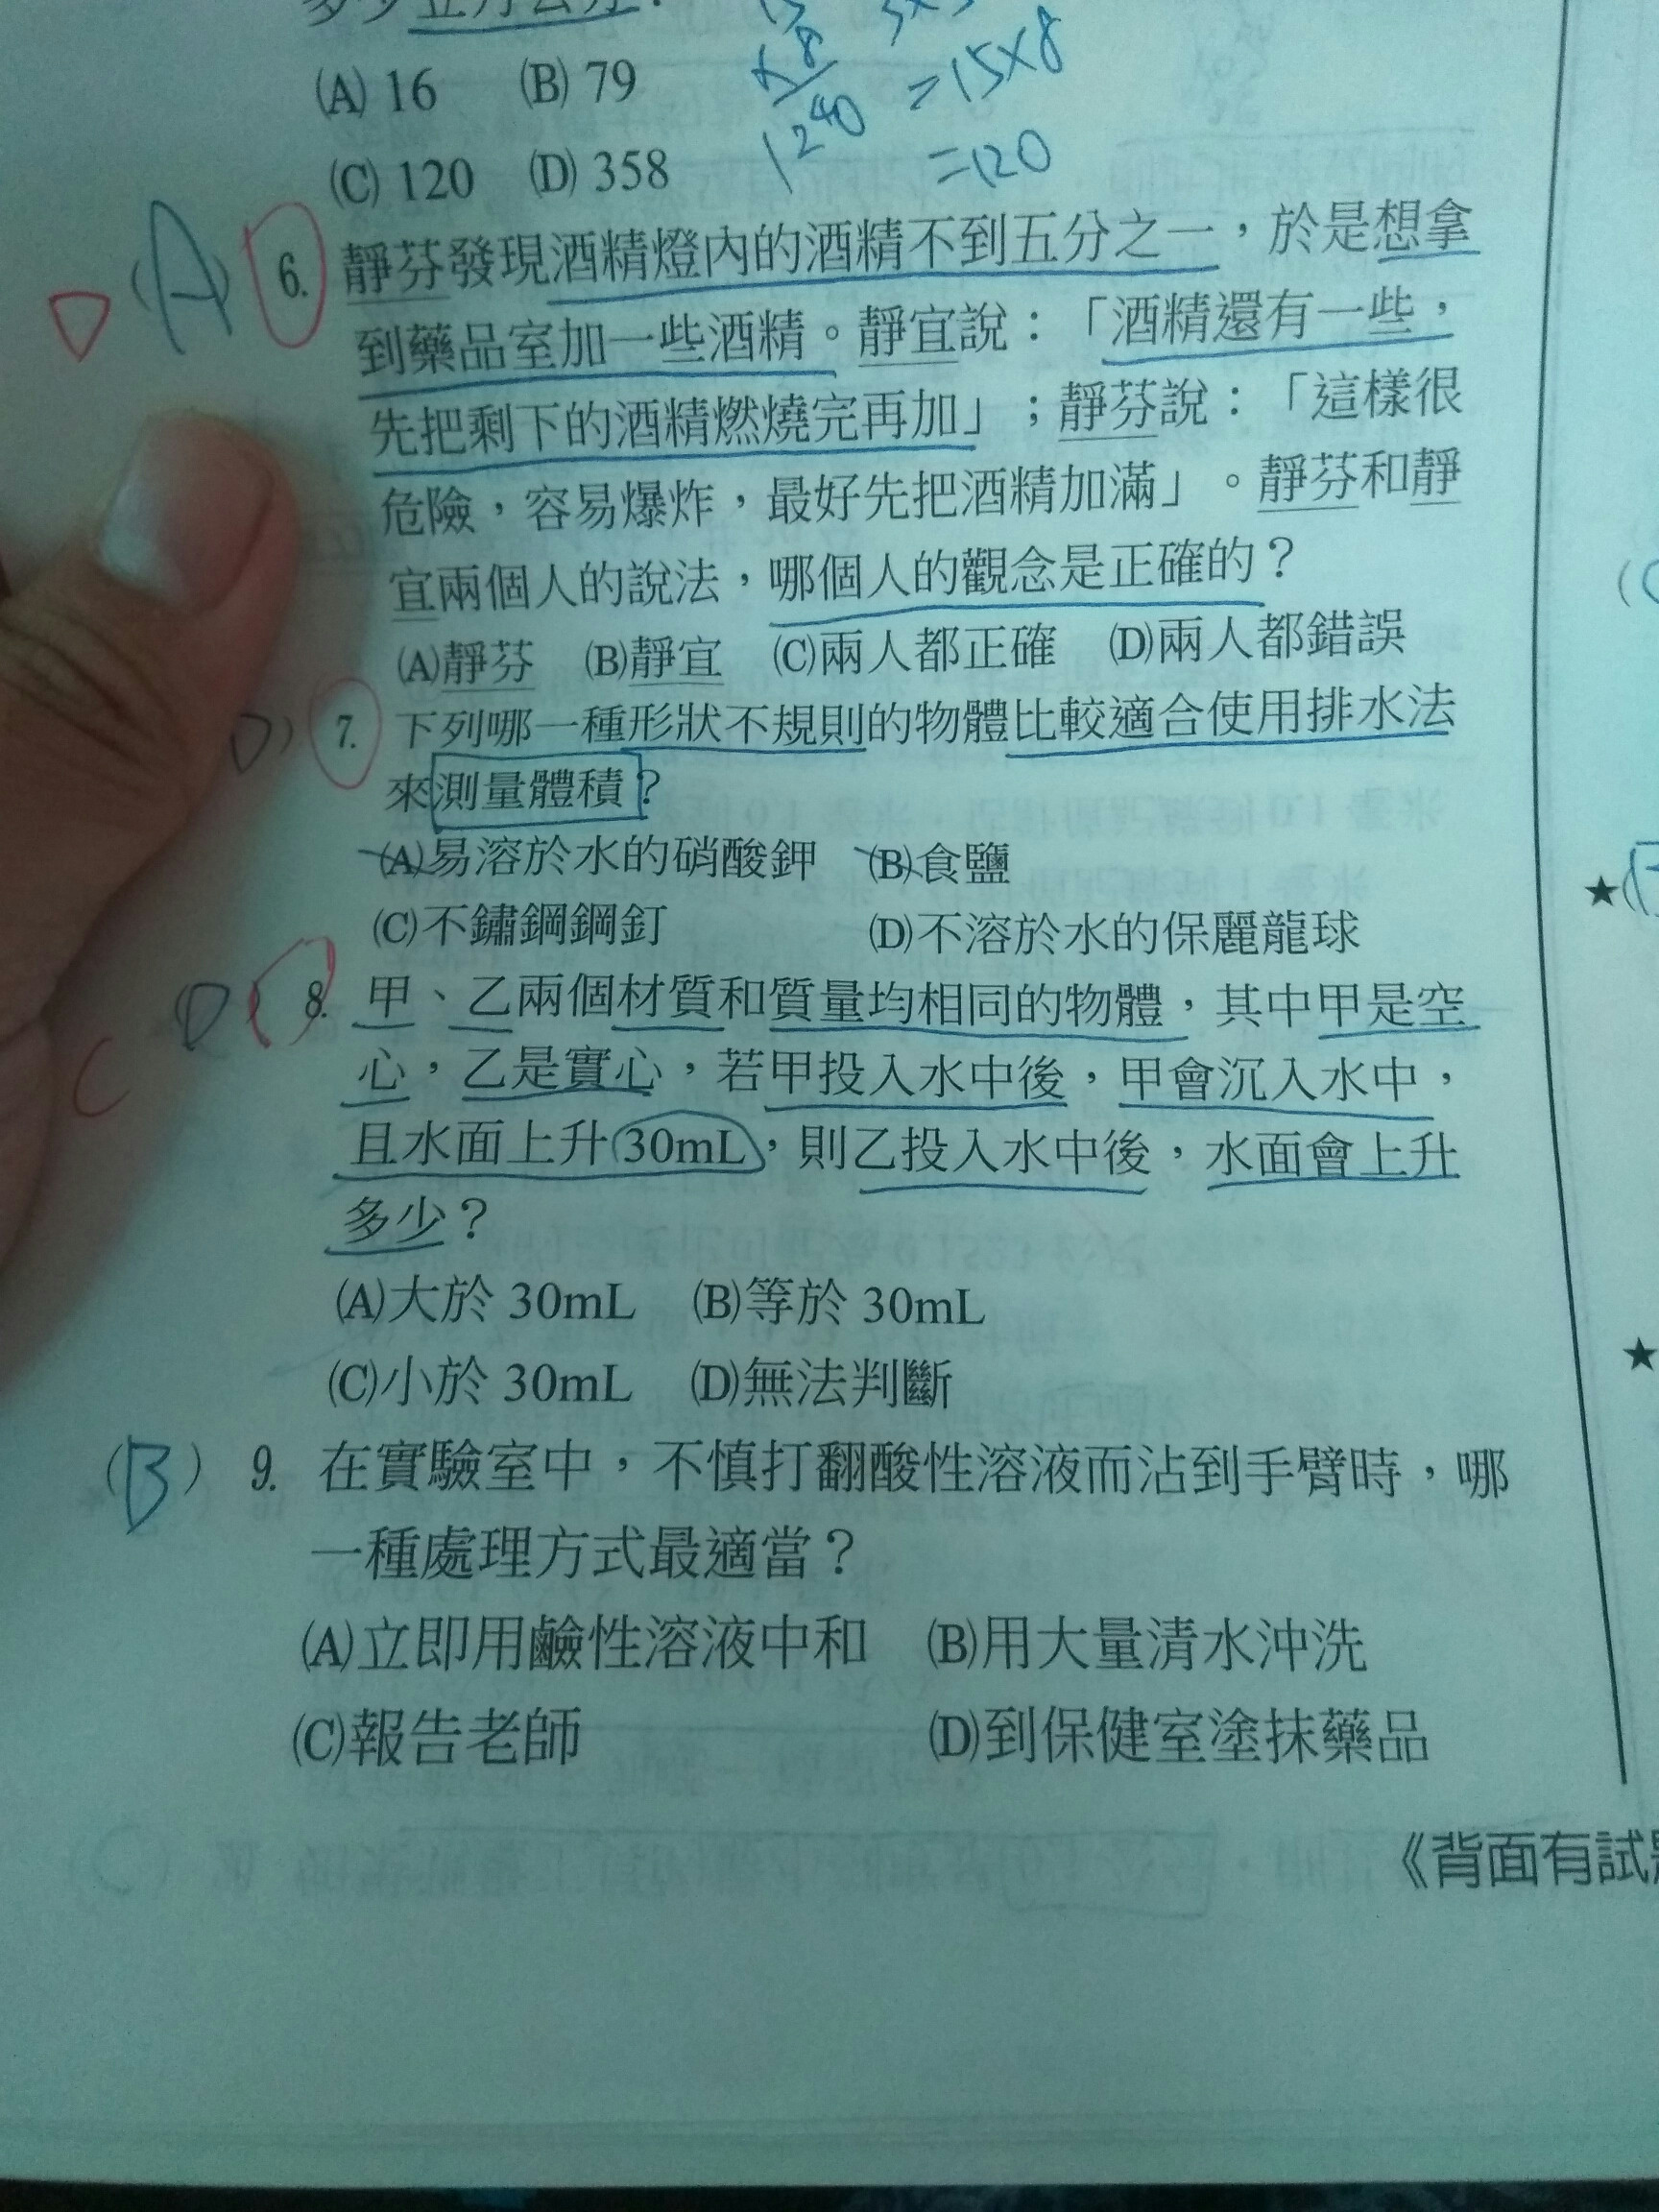 多少立方公分？
(A) 16 (B) 79
8
=15×8
1240
=120
(C) 120 (D) 358
(A) 6. 靜芬發現酒精燈內的酒精不到五分之一，於是想拿
到藥品室加一些酒精。靜宜說：「酒精還有一些，
先把剩下的酒精燃燒完再加」；靜芬說：「這樣很
危險，容易爆炸，最好先把酒精加滿」。靜芬和靜
宜兩個人的說法，哪個人的觀念是正確的？
(A)靜芬 (B)靜宜 (C)兩人都正確 (D)兩人都錯誤
D) 7. 下列哪一種形狀不規則的物體比較適合使用排水法
來測量體積？
(A)易溶於水的硝酸鉀 (B)食鹽
(C)不鏽鋼鋼釘 (D)不溶於水的保麗龍球
C (D 8. 甲、乙兩個材質和質量均相同的物體，其中甲是空
心，乙是實心，若甲投入水中後，甲會沉入水中，
且水面上升30mL，則乙投入水中後，水面會上升
多少？
(A)大於 30mL (B)等於 30mL
(C)小於 30mL (D)無法判斷
(B) 9. 在實驗室中，不慎打翻酸性溶液而沾到手臂時，哪
一種處理方式最適當？
(A)立即用鹼性溶液中和 (B)用大量清水沖洗
(C)報告老師 (D)到保健室塗抹藥品
《背面有試
★
★